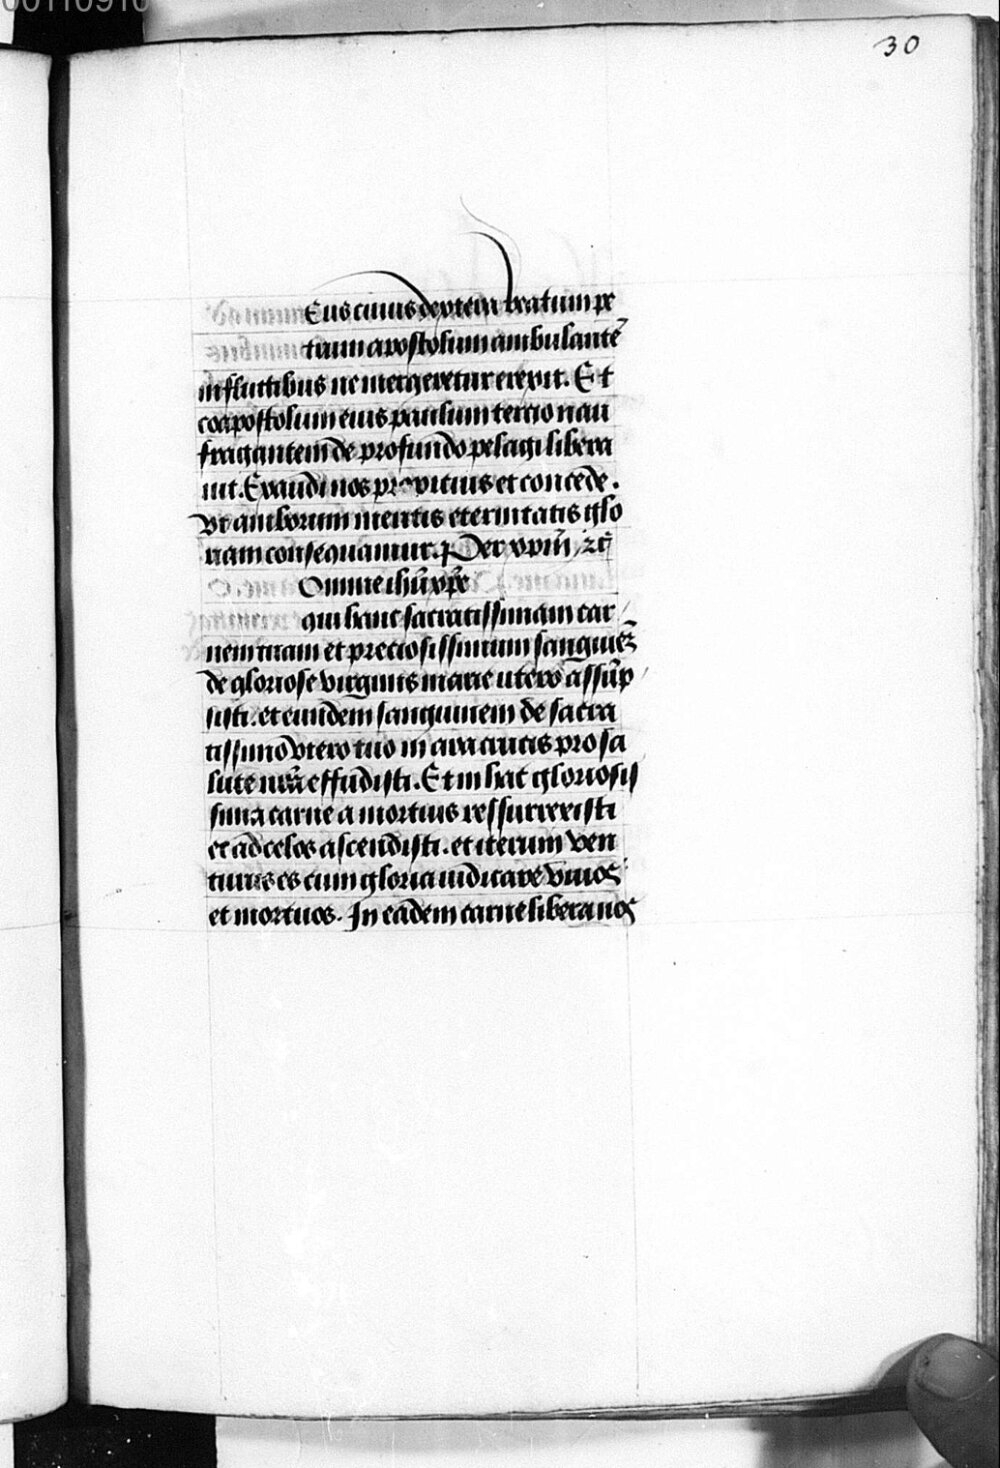 00110910
30
Eus cuius dextera beatum pe
trum apostolum ambulantē
in fluctibus ne mergeretur erexit. Et
coapostolum eius paulum tercio nau
fragantem de profundo pelagi libera
uit. Exaudi nos propitius et concede.
Vt amborum meritis eternitatis glo
riam consequamur. Per xpm̄ zc̄
Omine ihū xp̄e
qui hanc sacratissimam car
nem tuam et preciosissimum sanguinez
de gloriose virginis marie utero assūp
sisti. et eundem sanguinem de sacra
tissimo vtero tuo in ara crucis pro sa
lute nr̄a effūdisti. Et in hac gloriosis
sima carne a mortuis ressurrexisti
et ad celos ascendisti. et iterum ven
turus es cum gloria iudicare viuos
et mortuos. In eadem carne libera nos